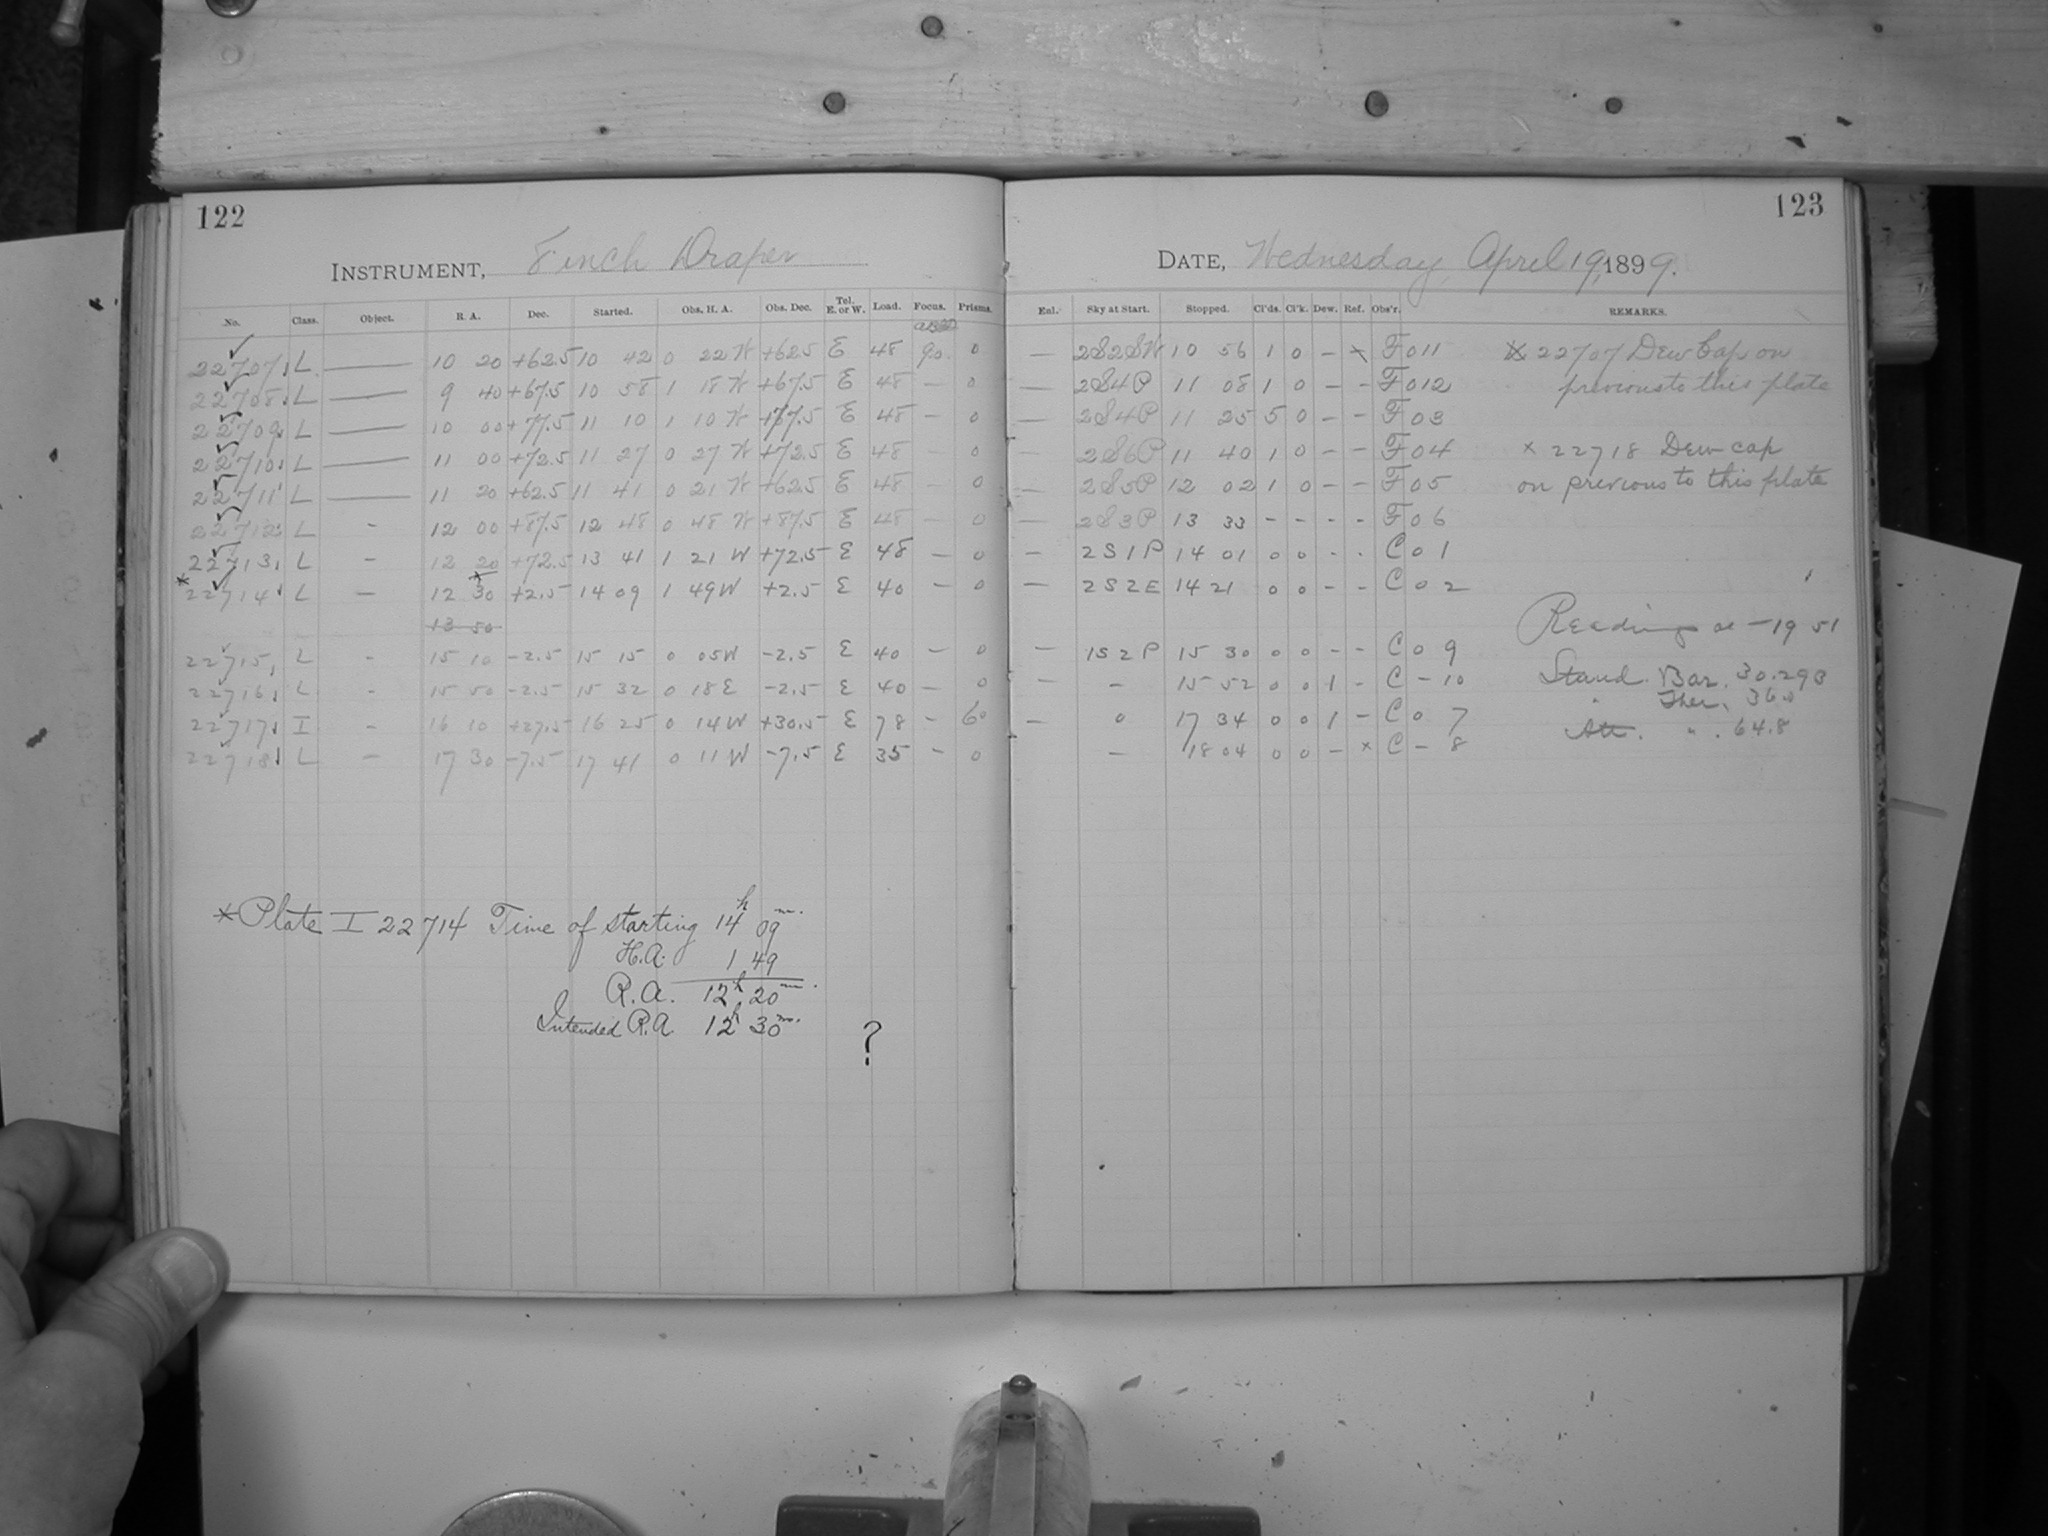 122
INSTRUMENT, 8 inch Draper
No. Class. Object. R. A. Dec. Started. Obs. H. A. Obs. Dec. Tel. E. or W. Load. Focus. Prisms.
22707 L — 10 20 +62.5 10 42 0 22 W +62.5 E 48 90 0
22708 L — 9 40 +67.5 10 58 1 18 W +67.5 E 48 — 0
22709 L — 10 00 +77.5 11 10 1 10 W +77.5 E 48 — 0
22710 L — 11 00 +72.5 11 27 0 27 W +72.5 E 48 — 0
22711 L — 11 20 +62.5 11 41 0 21 W +62.5 E 48 — 0
22712 L - 12 00 +87.5 12 48 0 48 W +87.5 E 48 — 0
22713 L - 12 20 +72.5 13 41 1 21 W +72.5 E 48 — 0
* 22714 L — 12 30 +2.5 14 09 1 49 W +2.5 E 40 — 0
13 50
22715 L - 15 10 -2.5 15 15 0 05 W -2.5 E 40 — 0
22716 L - 15 50 -2.5 15 32 0 18 E -2.5 E 40 — 0
22717 I - 16 10 +27.5 16 25 0 14 W +30.5 E 78 - 60
22718 L — 17 30 -7.5 17 41 0 11 W -7.5 E 35 — 0
*Plate I 22714 Time of starting 14h 09m.
H.A. 1 49
R.A. 12h 20m.
Intended R.A. 12h 30m.
?
123
DATE, Wednesday, April 19, 1899.
Enl. Sky at Start. Stopped. Cl'ds. Cl'k. Dew. Ref. Obs'r. REMARKS.
— 2S2SW 10 56 1 0 — x F 0 11 x 22707 Dew Cap on
— 2S4P 11 08 1 0 — - F 0 12 previous to this plate
— 2S4P 11 25 5 0 — - F 0 3
— 2S6P 11 40 1 0 — - F 0 4 x 22718 Dew cap
— 2S5P 12 02 1 0 — - F 0 5 on previous to this plate
— 2S3P 13 33 - - - - F 0 6
— 2S1P 14 01 0 0 - - C 0 1
— 2S2E 14 21 0 0 - - C 0 2
Reading at - 19 51
— 1S2P 15 30 0 0 - - C 0 9
- — 15 52 0 0 1 - C - 10 Stand. Bar. 30.293
" Ther. 36.0
— 0 17 34 0 0 1 - C 0 7 Att. " . 64.8
— 18 04 0 0 — x C - 8